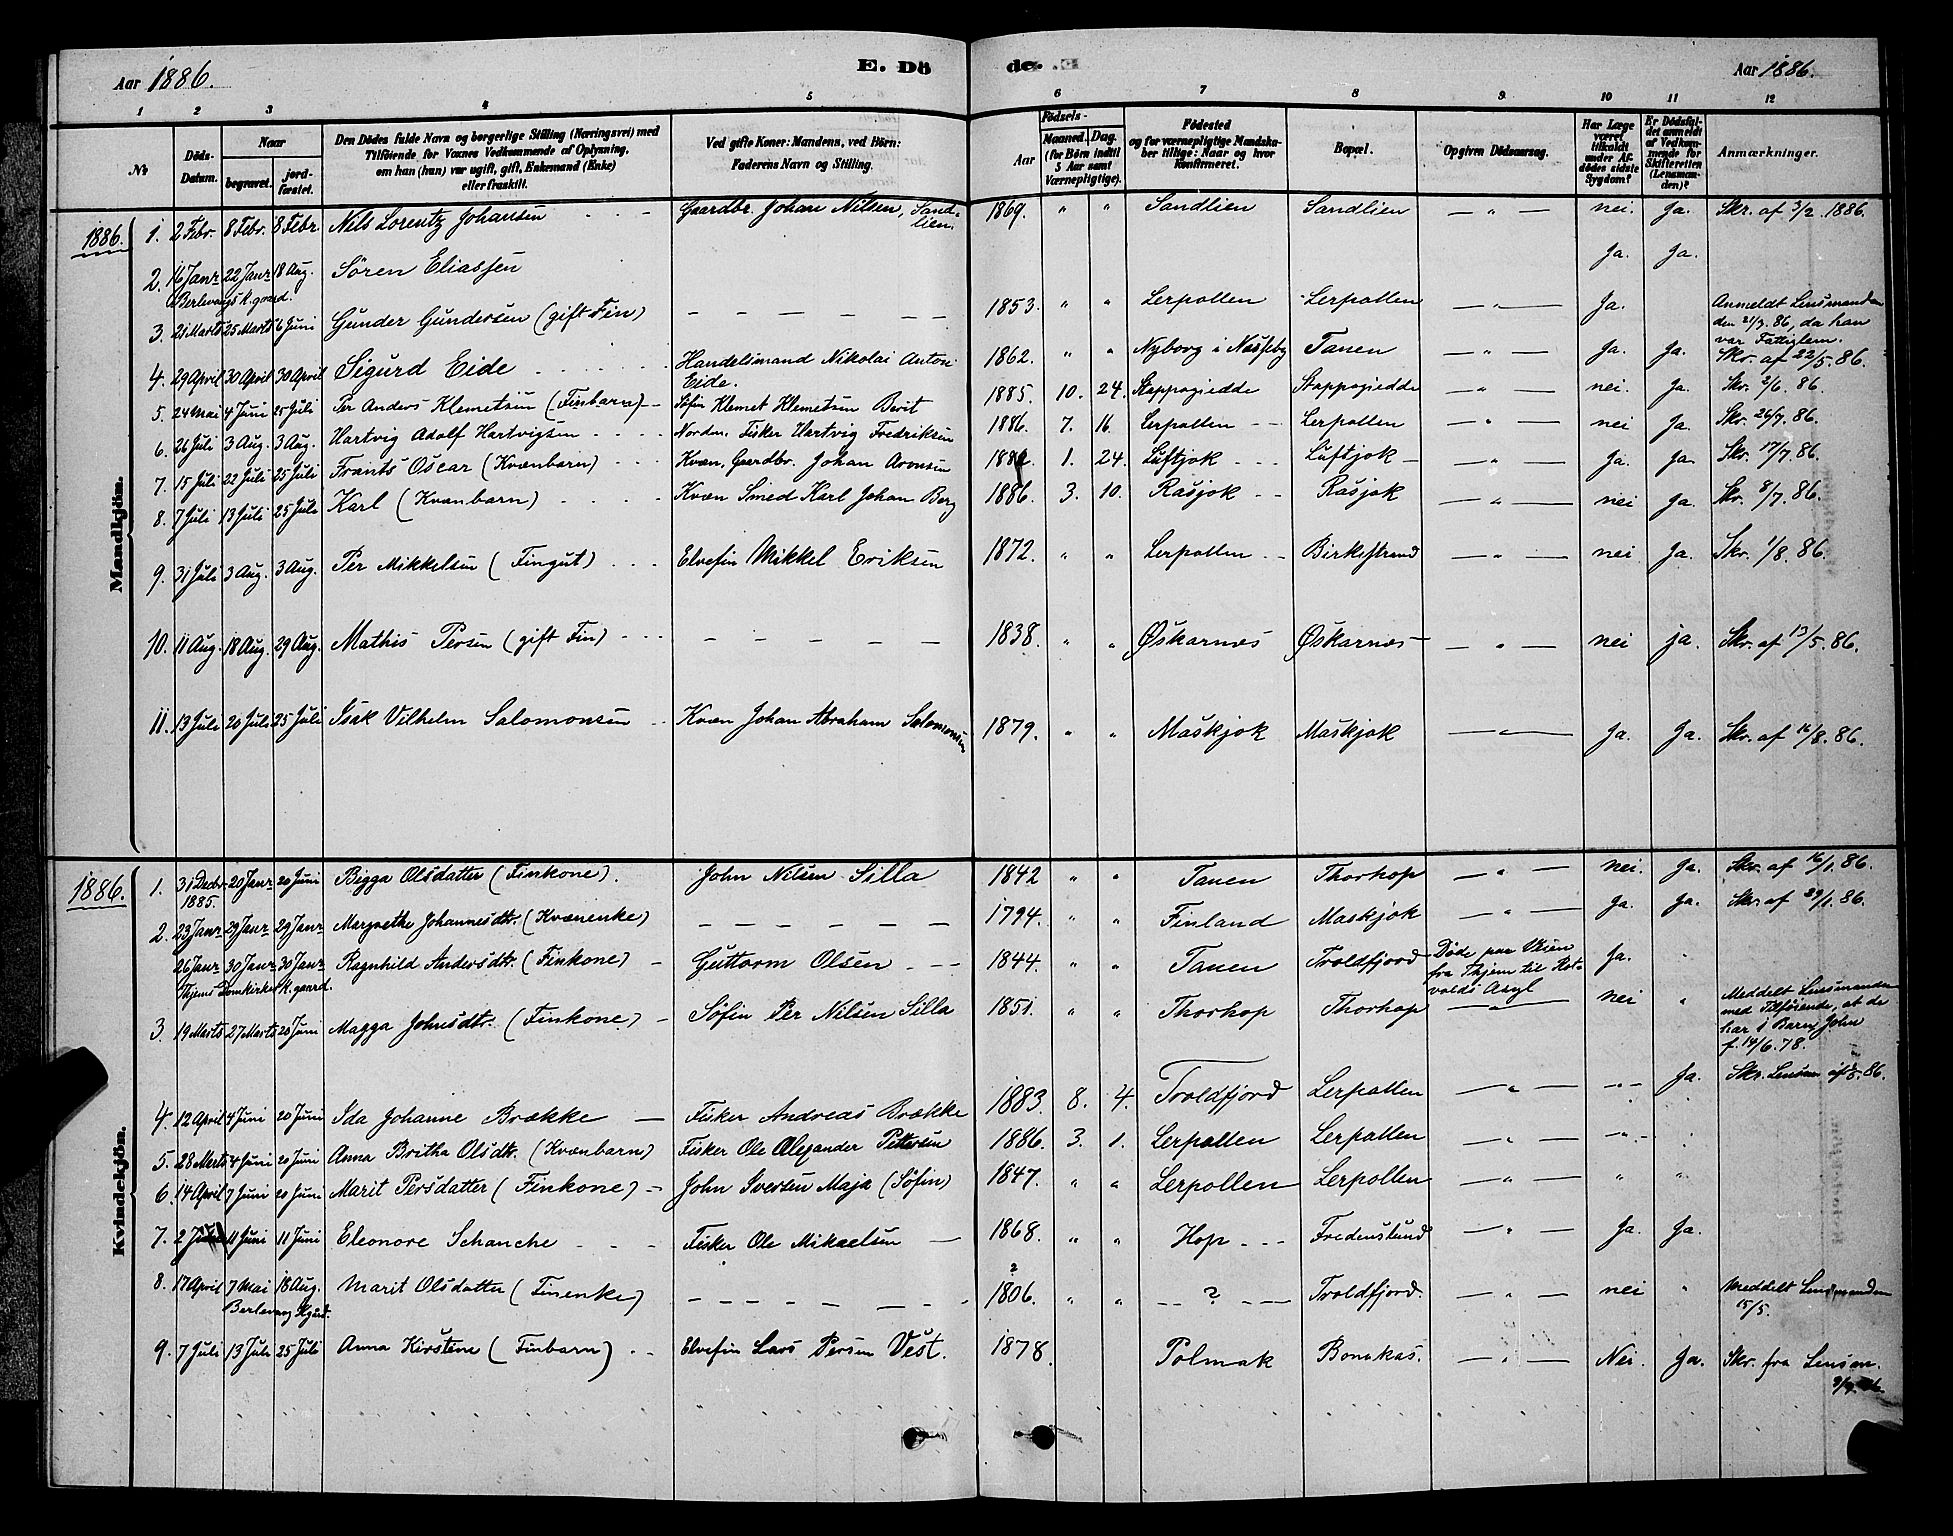 Aar 1886. E. Dö de. Aar 1886.
1 2 3 4 5 6 7 8 9 10 11 12
No Döds-Datum. Naar begravet. jord-fæstet. Den Dödes fulde Navn og borgerlige Stilling (Næringsvei) med Tilföiende for Voxnes Vedkommende af Oplysning, om han (hun) var ugift, gift, Enkemand (Enke) eller fraskilt. Ved gifte Koner: Mandens, ved Börn: Faderens Navn og Stilling. Födsels- Aar Maaned. Dag. (for Börn indtil 5 Aar samt Værnepligtige). Födested og for værnepligtige Mandskaber tillige: Naar og hvor Konfirmeret. Bopæl. Opgiven Dödsaarsag. Har Læge været tilkaldt under Afdödes sidste Sygdom? Er Dödsfaldet anmeldt af Vedkommende for Skifteretten (Lensmanden)? Anmærkninger.
Mandkjön.
1886. 1. 2 Febr. 8 Febr. 8 Febr. Nils Lorentz Johansen Gaardbr. Johan Nilsen, Sandlien. 1869. " " Sandlien Sandlien — " — nei. Ja. Skr. af 3/2. 1886.
2. 16 Janr 22 Janr 18 Aug. Sören Eliassen Ja. Ja.
Berlevaags K.gaard.
3. 21 Marts 25 Marts 6 Juni Gunder Gundersen (gift Fin) — — — — — — 1853. " " Lerpollen Lerpollen — " — Ja. Anmeldt Lensmanden den 21/3. 86, da han var Fattiglem.
4. 29 April 30 April 30 April Sigurd Eide Handelsmand Nikolai Anton Eide. 1862. " " Nyborg i Næsseby Tanen — " — Ja. Ja. Skr. af 22/5. 86.
5. 24 Mai 4 Juni 25 Juli Per Anders Klemetsen (Finbarn) — Söfin Klemet Klemetsen Berit 1885. 10. 24. Stappogiedde Stappogiedde — " — nei Ja. Skr. 2/6. 86.
6. 26 Juli 3 Aug. 3 Aug. Hartvig Adolf Hartvigsen Nordm. Fisker Hartvig Fredriksen 1886. 7. 16. Lerpollen Lerpollen — " — nei Ja. Skr. 26/7. 86.
7. 15 Juli 22 Juli 25 Juli Frants Oscar (Kvænbarn) Kvæn, Gaardbr. Johan Aronsen 1. 24. Luftjok Luftjok — — " — Ja. Ja. Skr. 17/7. 86.
8. 7 Juli 13 Juli 25 Juli Karl (Kvænbarn) Kvæn Smed Karl Johan Berg 1886. 3. 10. Rasjok Rasjok — " — nei Ja. Skr. 8/7. 86.
9. 31 Juli 3 Aug. 3 Aug. Per Mikkelsen (Fingut) Elvefin Mikkel Eriksen 1872. " " Lerpollen Birkestrand — " — nei Ja. Skr. 1/8. 86.
10. 11 Aug. 18 Aug. 29 Aug. Mathis Persen (gift Fin) — — — — — 1838. " " Øskarnæs Øskarnæs — — " — nei ja. Skr. af 13/5. 86.
11. 13 Juli 20 Juli 25 Juli Isak Vilhelm Salomonsen Kvæn Johan Abraham Salomonsen 1879. " " Maskjok Maskjok — " — Ja. Ja. Skr. af 16/8. 86.
Kvindekjön.
1886. 1. 31 Decbr 1885. 20 Janr 20 Juni Bigga Olsdatter (Finkone). John Nilsen Silla 1842 " " Tanen Thorhop — " — nei. Ja. Skr. af 16/1. 86.
2. 23 Janr 29 Janr 29 Janr Margrethe Johannesdtr. (Kvænenke) — — — — — — 1794. " " Finland Maskjok — " — Ja. Ja. Skr af 29/1. 86.
26 Janr 30 Janr 30 Janr Ragnhild Andersdtr. (Finkone) — Guttorm Olsen 1844. " " Tanen Troldfjord Döde paa Veien fra Thjem til Rotvolds Asyl Ja.
Thjems Domkirkes K.gaard.
3. 19 Marts 27 Marts 20 Juni Magga Johnsdtr. (Finkone) — Söfin Per Nilsen Silla 1851. " " Thorhop Thorhop — " — nei " Meddelt Lensmanden med Tilföiende, at de har 1 Barn, John f. 14/6. 78.
4. 12 April 4 Juni 20 Juni Ida Johanne Brække — Fisker Andreas Brække 1883. 8. 4. Troldfjord Lerpollen — " — " Ja. Skr. Lensm. 86.
5. 28 Marts 4 Juni 20 Juni Anna Britha Olsdtr. (Kvænbarn) Fisker Ole Alexander Pettersen 1886. 3. 1. Lerpollen Lerpollen — " — "
6. 14 April 7 Juni 20 Juni Marit Persdatter (Finkone) — John Iversen Maja (Söfin) 1847. " " Lerpollen Lerpollen — " — " "
7. 2 11 Juni 11 Juni Eleonore Schanche Fisker Ole Mikaelsen — 1868. " " Hop Fredenslund — " — Ja. Ja.
8. 17 April 7 Mai 18 Aug. Marit Olsdatter (Finenke) — — — — — — ? 1806. " " — ? — Troldfjord. — " — nei " Meddelt Lensmanden 15/5.
Berlevaag Kgaard.
9. 7 Juli 13 Juli 25 Juli Anna Kirstine (Finbarn) Elvefin Lars Persen Vest. 1878. Polmak Bonakas. — " — Nei. Ja. Skr. fra Lensm.